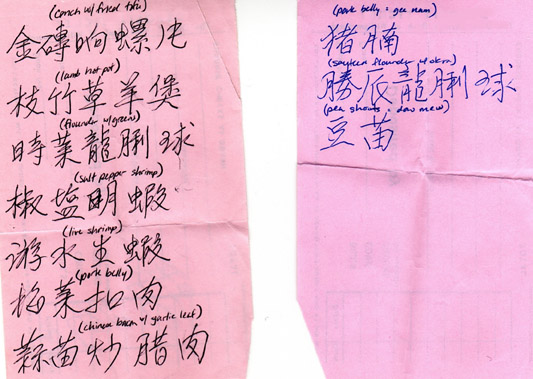 (conch w/ fried tofu)
金磚响螺片
(lamb hot pot)
枝竹草羊煲
(flounder w/ greens)
時菜龍脷球
(salt pepper shrimp)
椒塩明蝦
(live shrimp)
游水生蝦
(pork belly)
梅菜扣肉
(chinese bacon w/ garlic leaf)
蒜苗炒腊肉
(pork belly = gee nam)
猪腩
flounder w/ okra)
勝瓜龍脷球
(pea shoots = dau mew)
豆苗